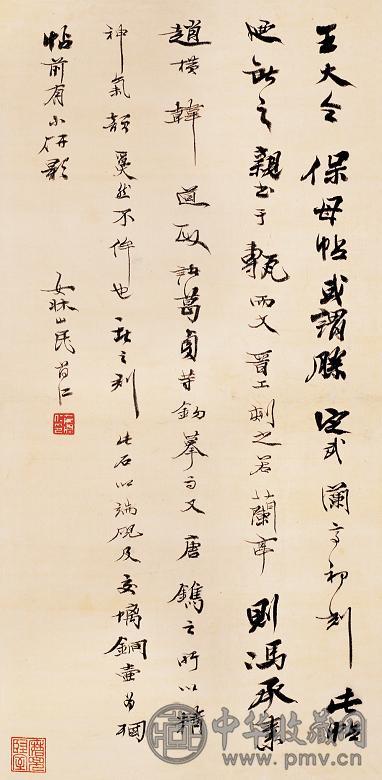 王大令保母帖或謂勝定武蘭亭初刻此帖
迺獻之親書于甎而又晋工刻之若蘭亭則馮承素
趙模韓道政諸葛貞等鉤摹而又唐鐫之所以精
神氣韻奐然不侔也獻之刻此石以端硯及交螭銅壺為殉
帖前有小研影
女牀山民
中华收藏网
www.pmv.cn